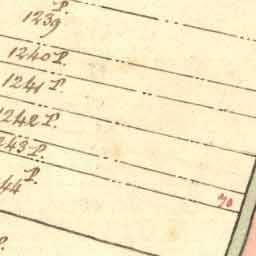 P.
1239
1240 P.
1241 P.
1242 P.
243 P.
P.
44
70
P.